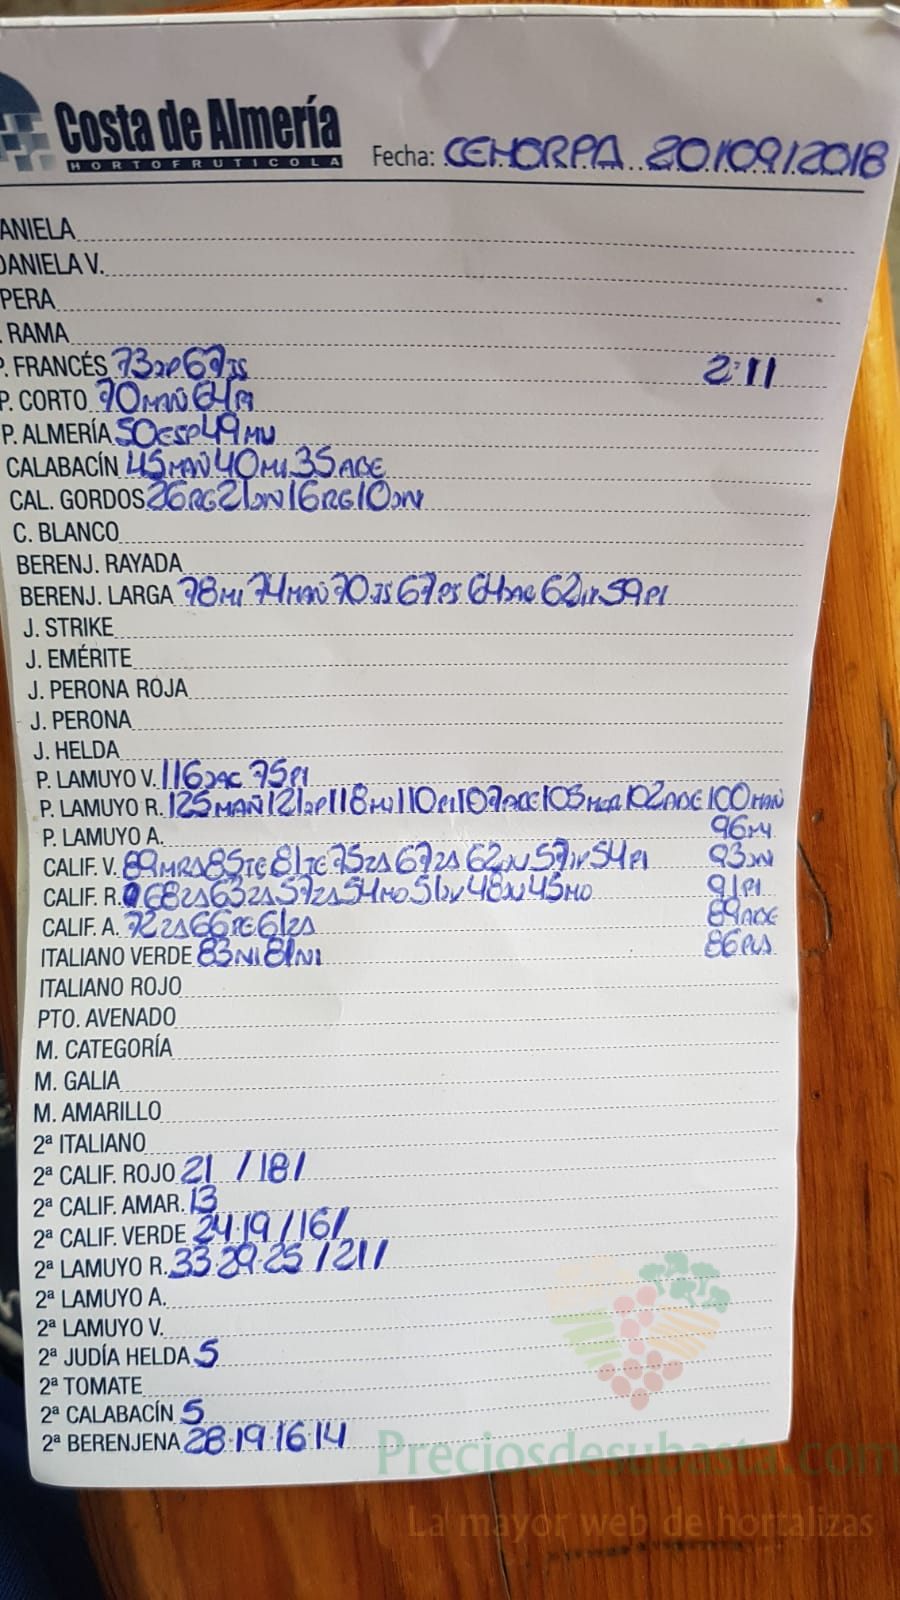 Costa de Almería
HORTOFRUTICOLA
Fecha: CEHORPA 20/09/2018
ANIELA
DANIELA V.
PERA
. RAMA
P. FRANCÉS 73 67JS 2·11
P. CORTO 70MAÑ 64PI
P. ALMERÍA 50ESP 49MU
CALABACÍN 45MAÑ 40MI 35ADE
CAL. GORDOS 26RG 21JN 16RG 10JN
C. BLANCO
BERENJ. RAYADA
BERENJ. LARGA 78MI 74MAÑ 70JS 67PS 64JAC 62 59PI
J. STRIKE
J. EMÉRITE
J. PERONA ROJA
J. PERONA
J. HELDA
P. LAMUYO V. 116JAC 75PI
P. LAMUYO R. 125MAÑ 121JP 118MU 110PI 107ADE 105MOR 102ADE 100MAÑ
P. LAMUYO A. 96MI
CALIF. V. 89MRA 85TE 81TE 75ZA 67ZA 62JN 57 54PI 93JN
CALIF. R. 68ZA 63ZA 57ZA 54MO 51JN 48JN 45MO 91PI
CALIF. A. 72ZA 66TE 61ZA 89ADE
ITALIANO VERDE 83NI 81NI 86PLA
ITALIANO ROJO
PTO. AVENADO
M. CATEGORÍA
M. GALIA
M. AMARILLO
2ª ITALIANO
2ª CALIF. ROJO 21 /18/
2ª CALIF. AMAR. 13
2ª CALIF. VERDE 24·19 /16/
2ª LAMUYO R. 33·29·25 /21/
2ª LAMUYO A.
2ª LAMUYO V.
2ª JUDÍA HELDA 5
2ª TOMATE
2ª CALABACÍN 5
2ª BERENJENA 28·19·16·14
Preciosdesubasta.com
La mayor web de hortalizas